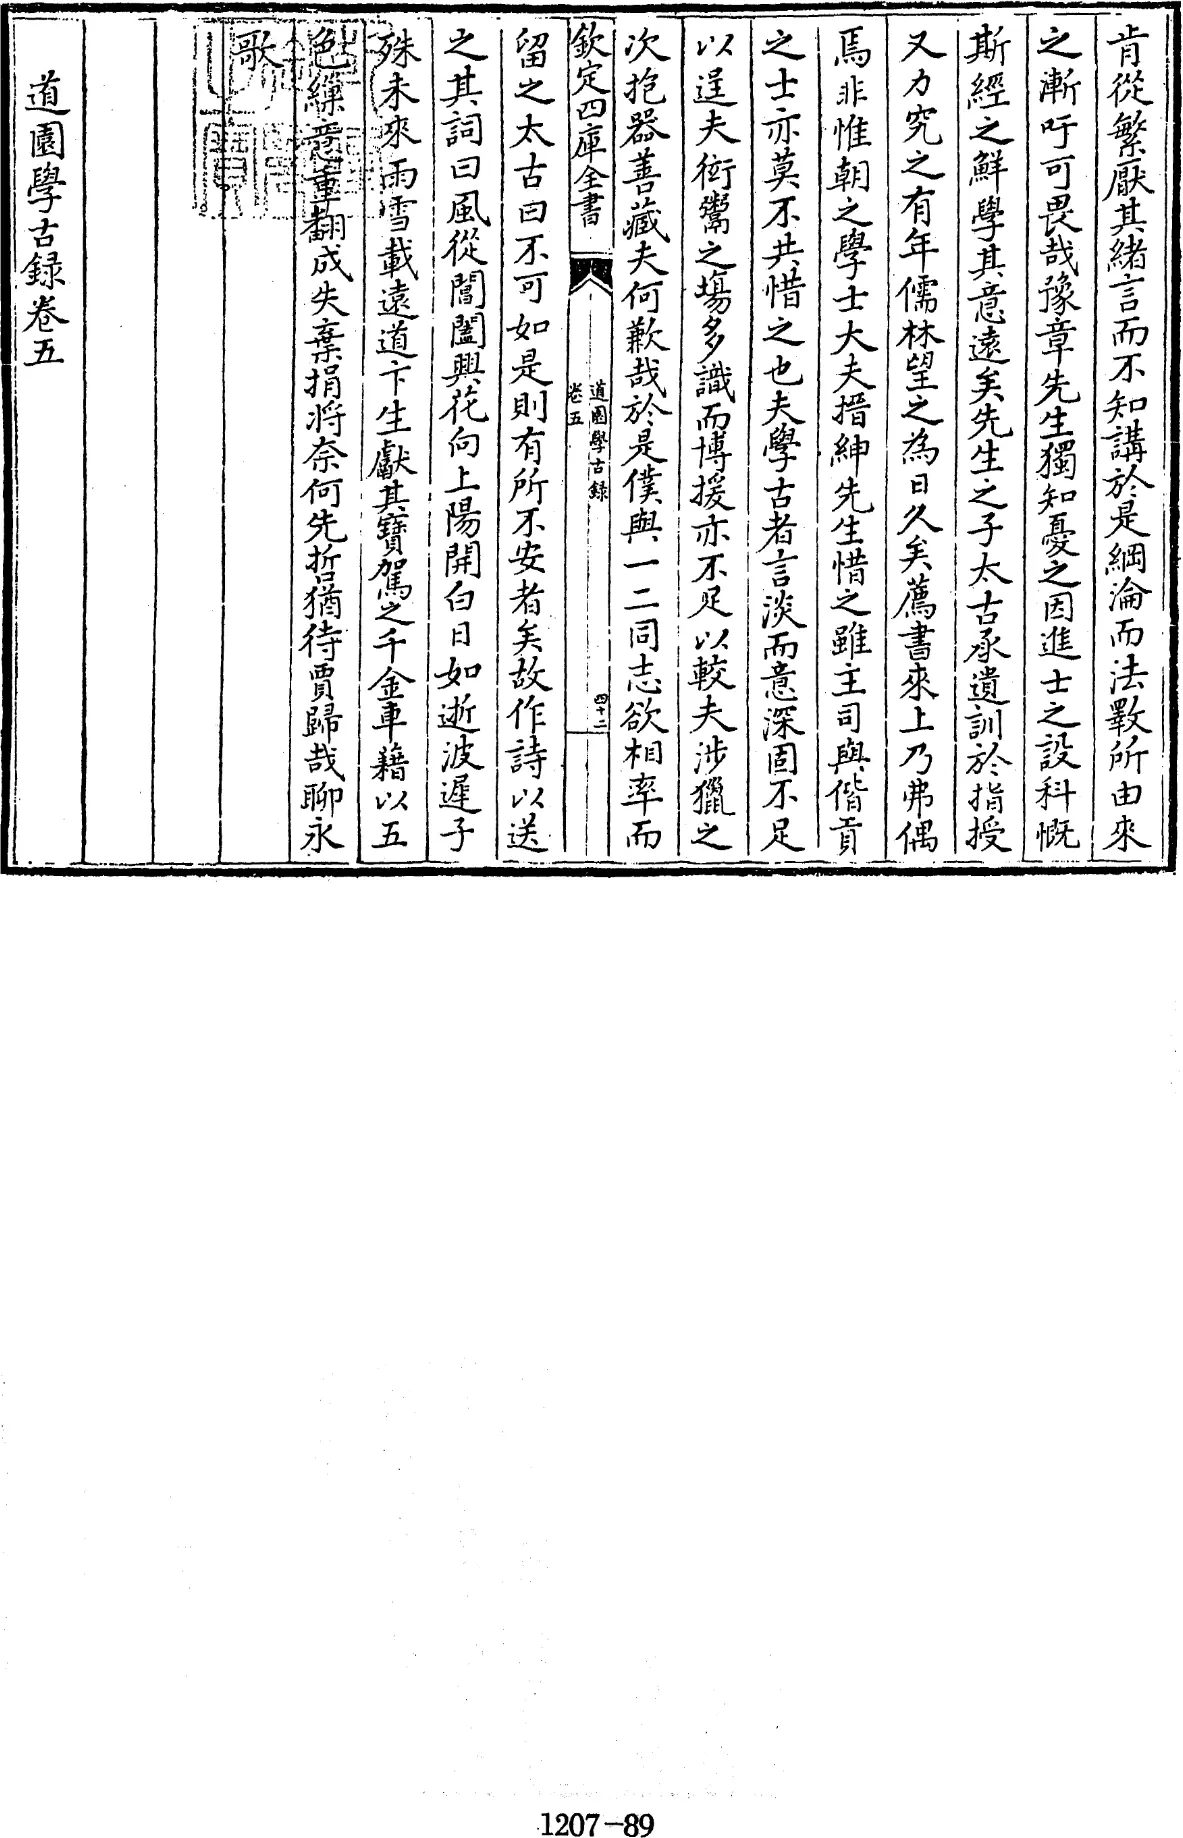 肯從繁厭其緒言而不知講於是綱淪而法斁所由來
之漸吁可畏哉豫章先生獨知憂之因進士之設科慨
斯經之鮮學其意遠矣先生之子太古承遺訓於指授
又力究之有年儒林望之為日久矣薦書來上乃弗偶
焉非惟朝之學士大夫搢紳先生惜之雖主司與偕貢
之士亦莫不共惜之也夫學古者言淡而意深固不足
以逞夫衒鬻之場多識而博援亦不足以較夫涉獵之
次抱器善藏夫何歉哉於是僕與一二同志欲相率而
欽定四庫全書
道園學古録
卷五
四十二
留之太古曰不可如是則有所不安者矣故作詩以送
之其詞曰風從閶闔興花向上陽開白日如逝波遲子
殊未來雨雪載遠道卞生獻其寶駕之千金車藉以五
色繅意重翻成失棄捐將奈何先哲猶待賈歸哉聊永
歌
道園學古録卷五
1207-89